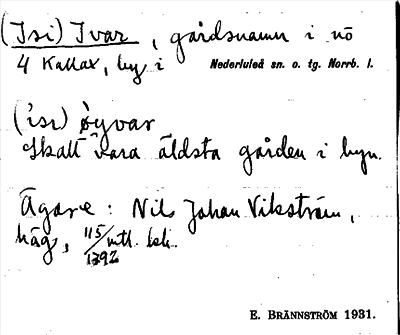 (Isi) Ivar, gårdsnamn i nö
4 Kallax, by i Nederluleå sn. o. tg. Norrb. l.
('isi) øyvar
Skall vara äldsta gården i byn.
Ägare: Nils Johan Vikström,
115/1392 mtl.
E. BRÄNNSTRÖM 1931.